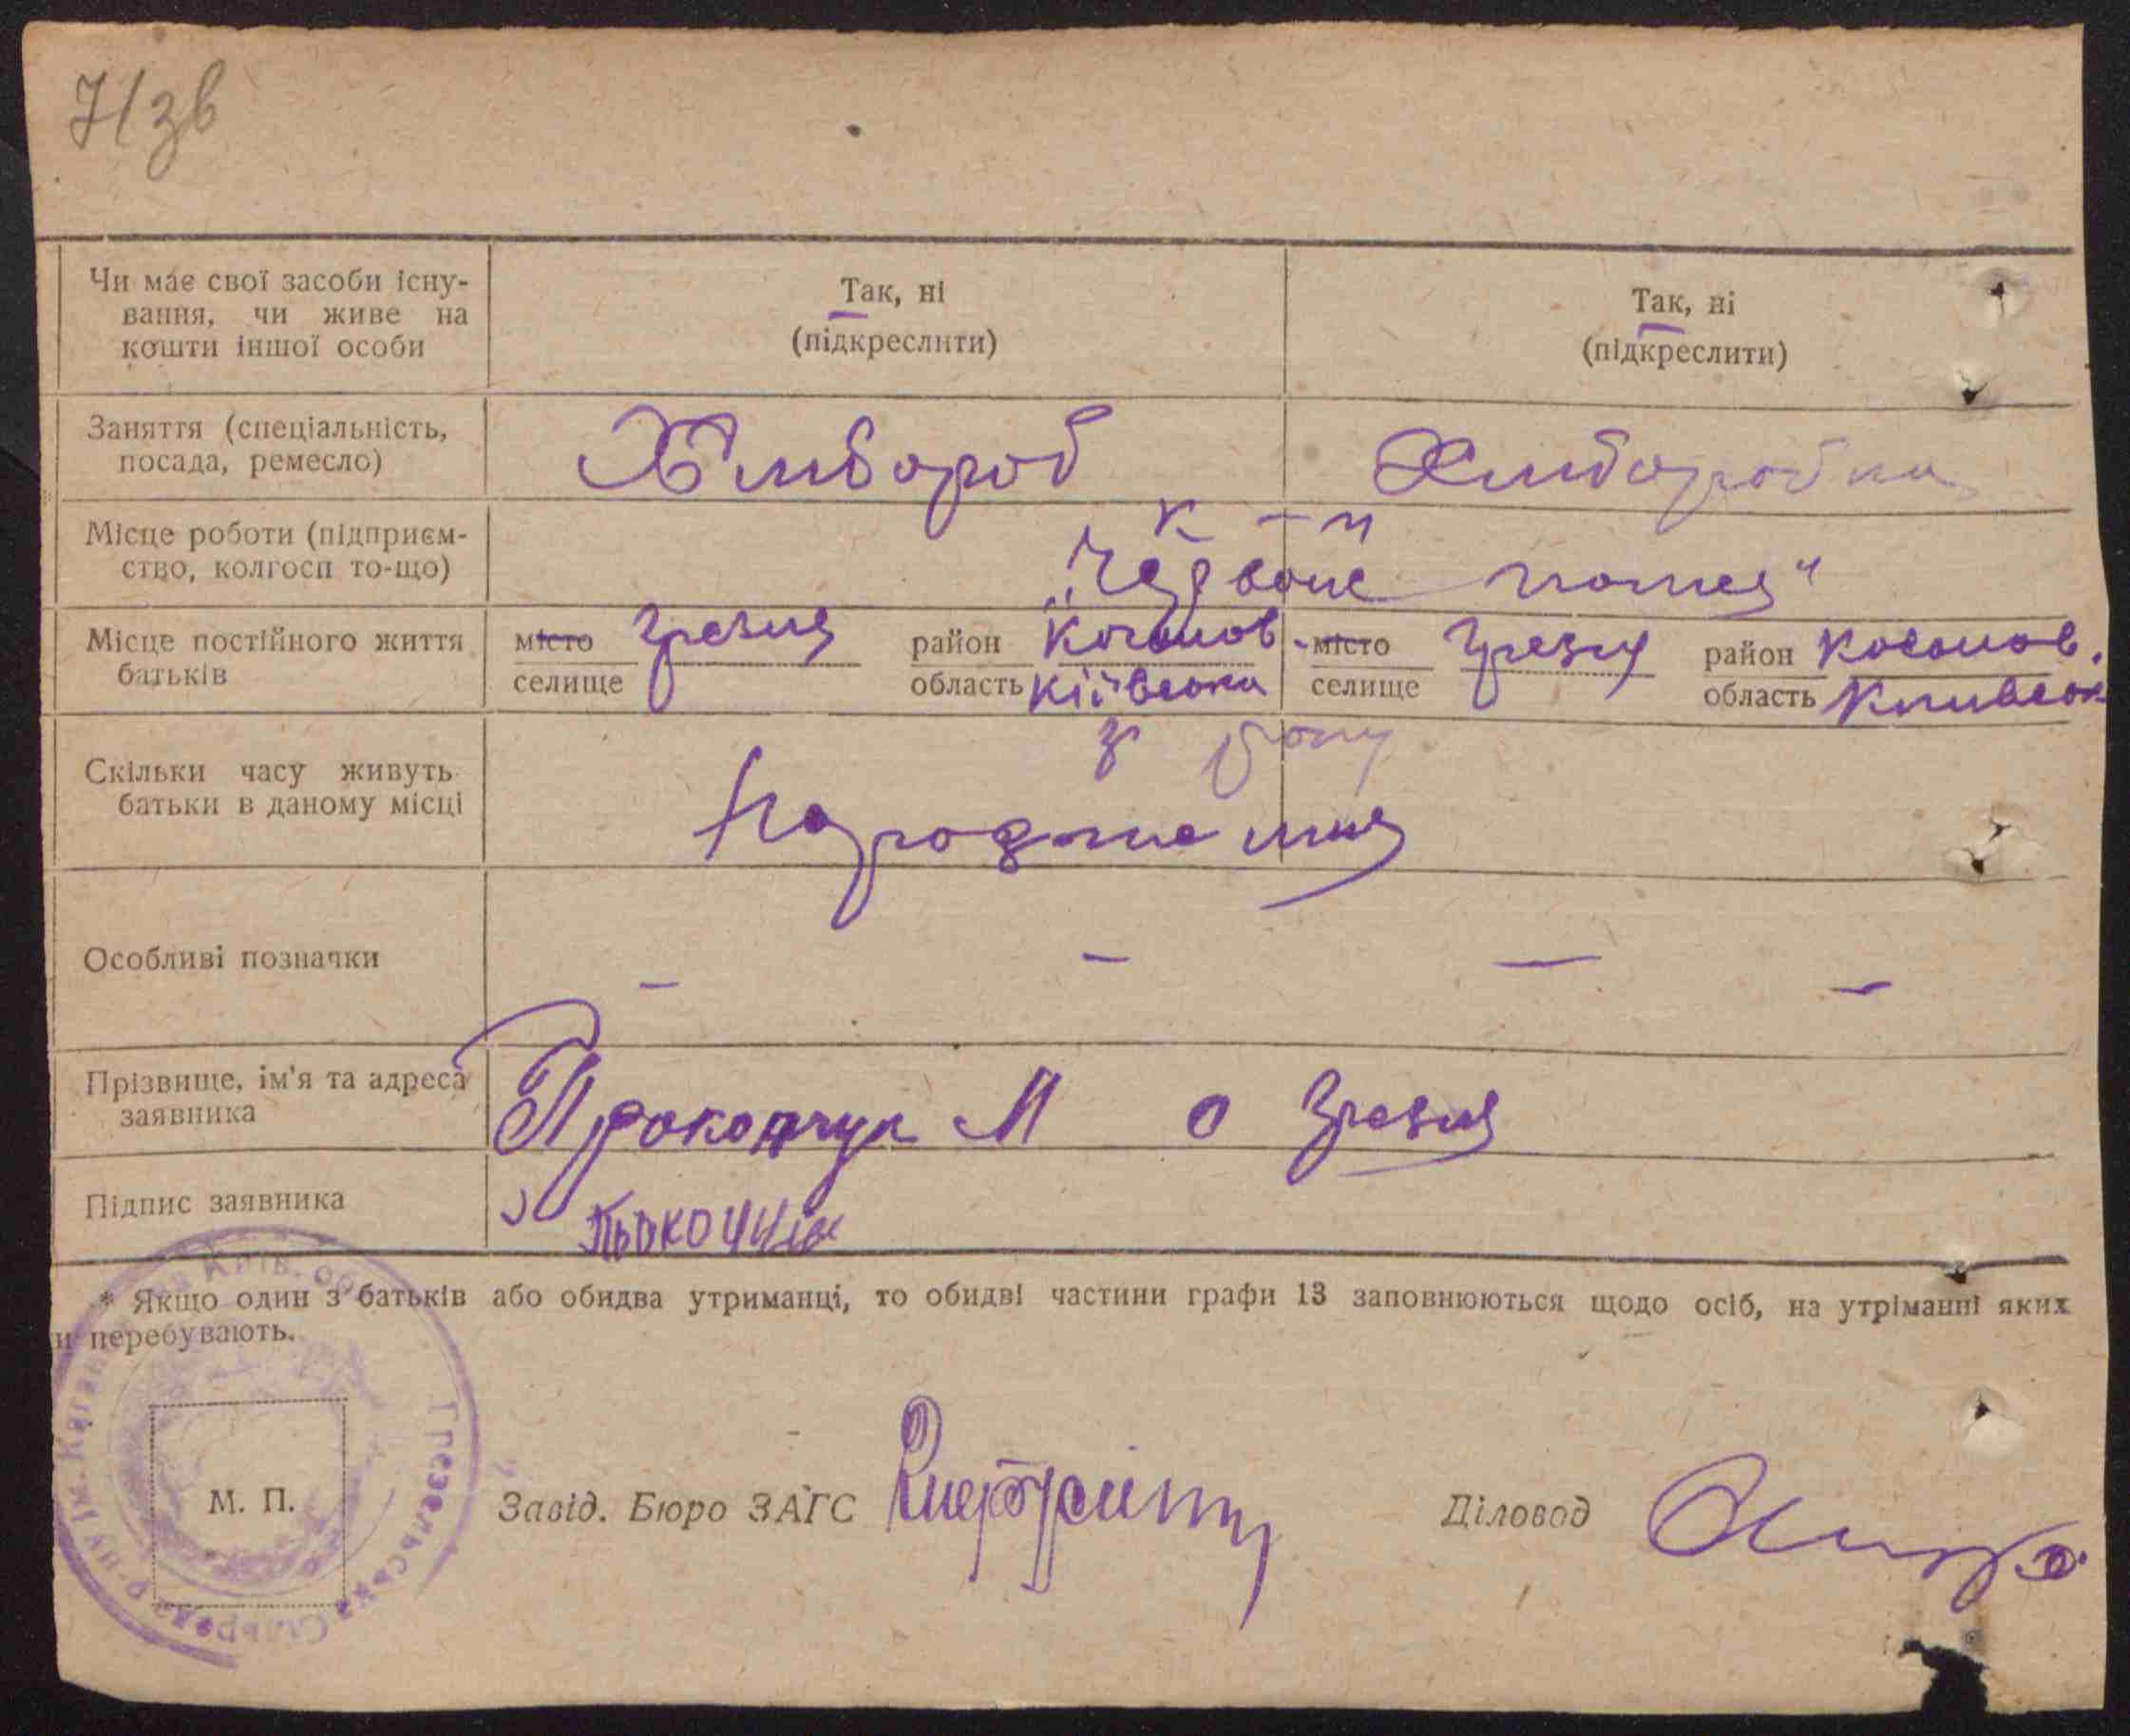 Чи має свої засоби існу-
вання, чи живе на
кошти іншої особи
Так, ні
(підкреслити)
Так, ні
(підкреслити)
Заняття (спеціальність,
посада, ремесло)
Хлибороб
Хлиборобка
Місце роботи (підприєм-
ство, колгосп то-що)
к-п
„Червоне поле"
Місце постійного життя
батьків
місто
селище
Грезля
район Коганов
область Київська
місто
селище
Грезля
район Коганов.
область Київськ
Скільки часу живуть
батьки в даному місці
з
Народження
Особливі позначки
— — — —
Прізвище, ім'я та адреса
заявника
Прокопчук М с Грезля
Підпис заявника
* Якщо один з батьків або обидва утриманці, то обидві частини графи 13 заповнюються щодо осіб, на утріманні яких
и перебувають.
Грезельська Сільрада р-ну ім. Кагано Київ. об
М. П.
Завід. Бюро ЗАГС
Діловод